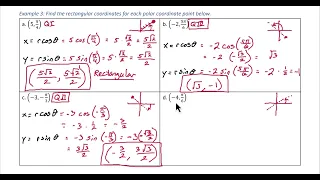 Example 3: Find the rectangular coordinates for each polar coordinate point below.
a. (5, π/4) QI
x = r cosθ = 5 cos(π/4) = 5 · √2/2 = 5√2/2
y = r sinθ = 5 sin(π/4) = 5 · √2/2 = 5√2/2
(5√2/2, 5√2/2) Rectangular
b. (-2, 5π/6)
x = r cosθ = -2 cos(5π/6)
= -2 · -√3/2 = √3
y = r sinθ = -2 sin(5π/6) = -2 · 1/2 = -1
(√3, -1)
c. (-3, -π/3) QII
x = r cosθ = -3 cos(-π/3)
= -3 · 1/2 = -3/2
y = r sinθ = -3 sin(-π/3) = -3(-√3/2)
= 3√3/2
(-3/2, 3√3/2)
d. (-4,